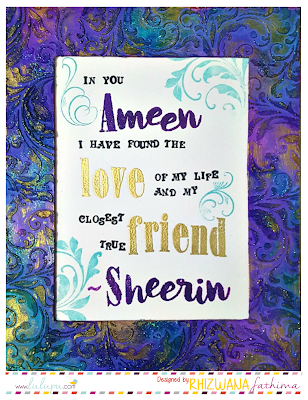 IN YOU
Ameen
I HAVE FOUND THE
love OF MY LIFE
AND MY
CLOSEST
TRUE friend
~Sheerin
www.lulupu.com
Designed by RHIZWANA fathima